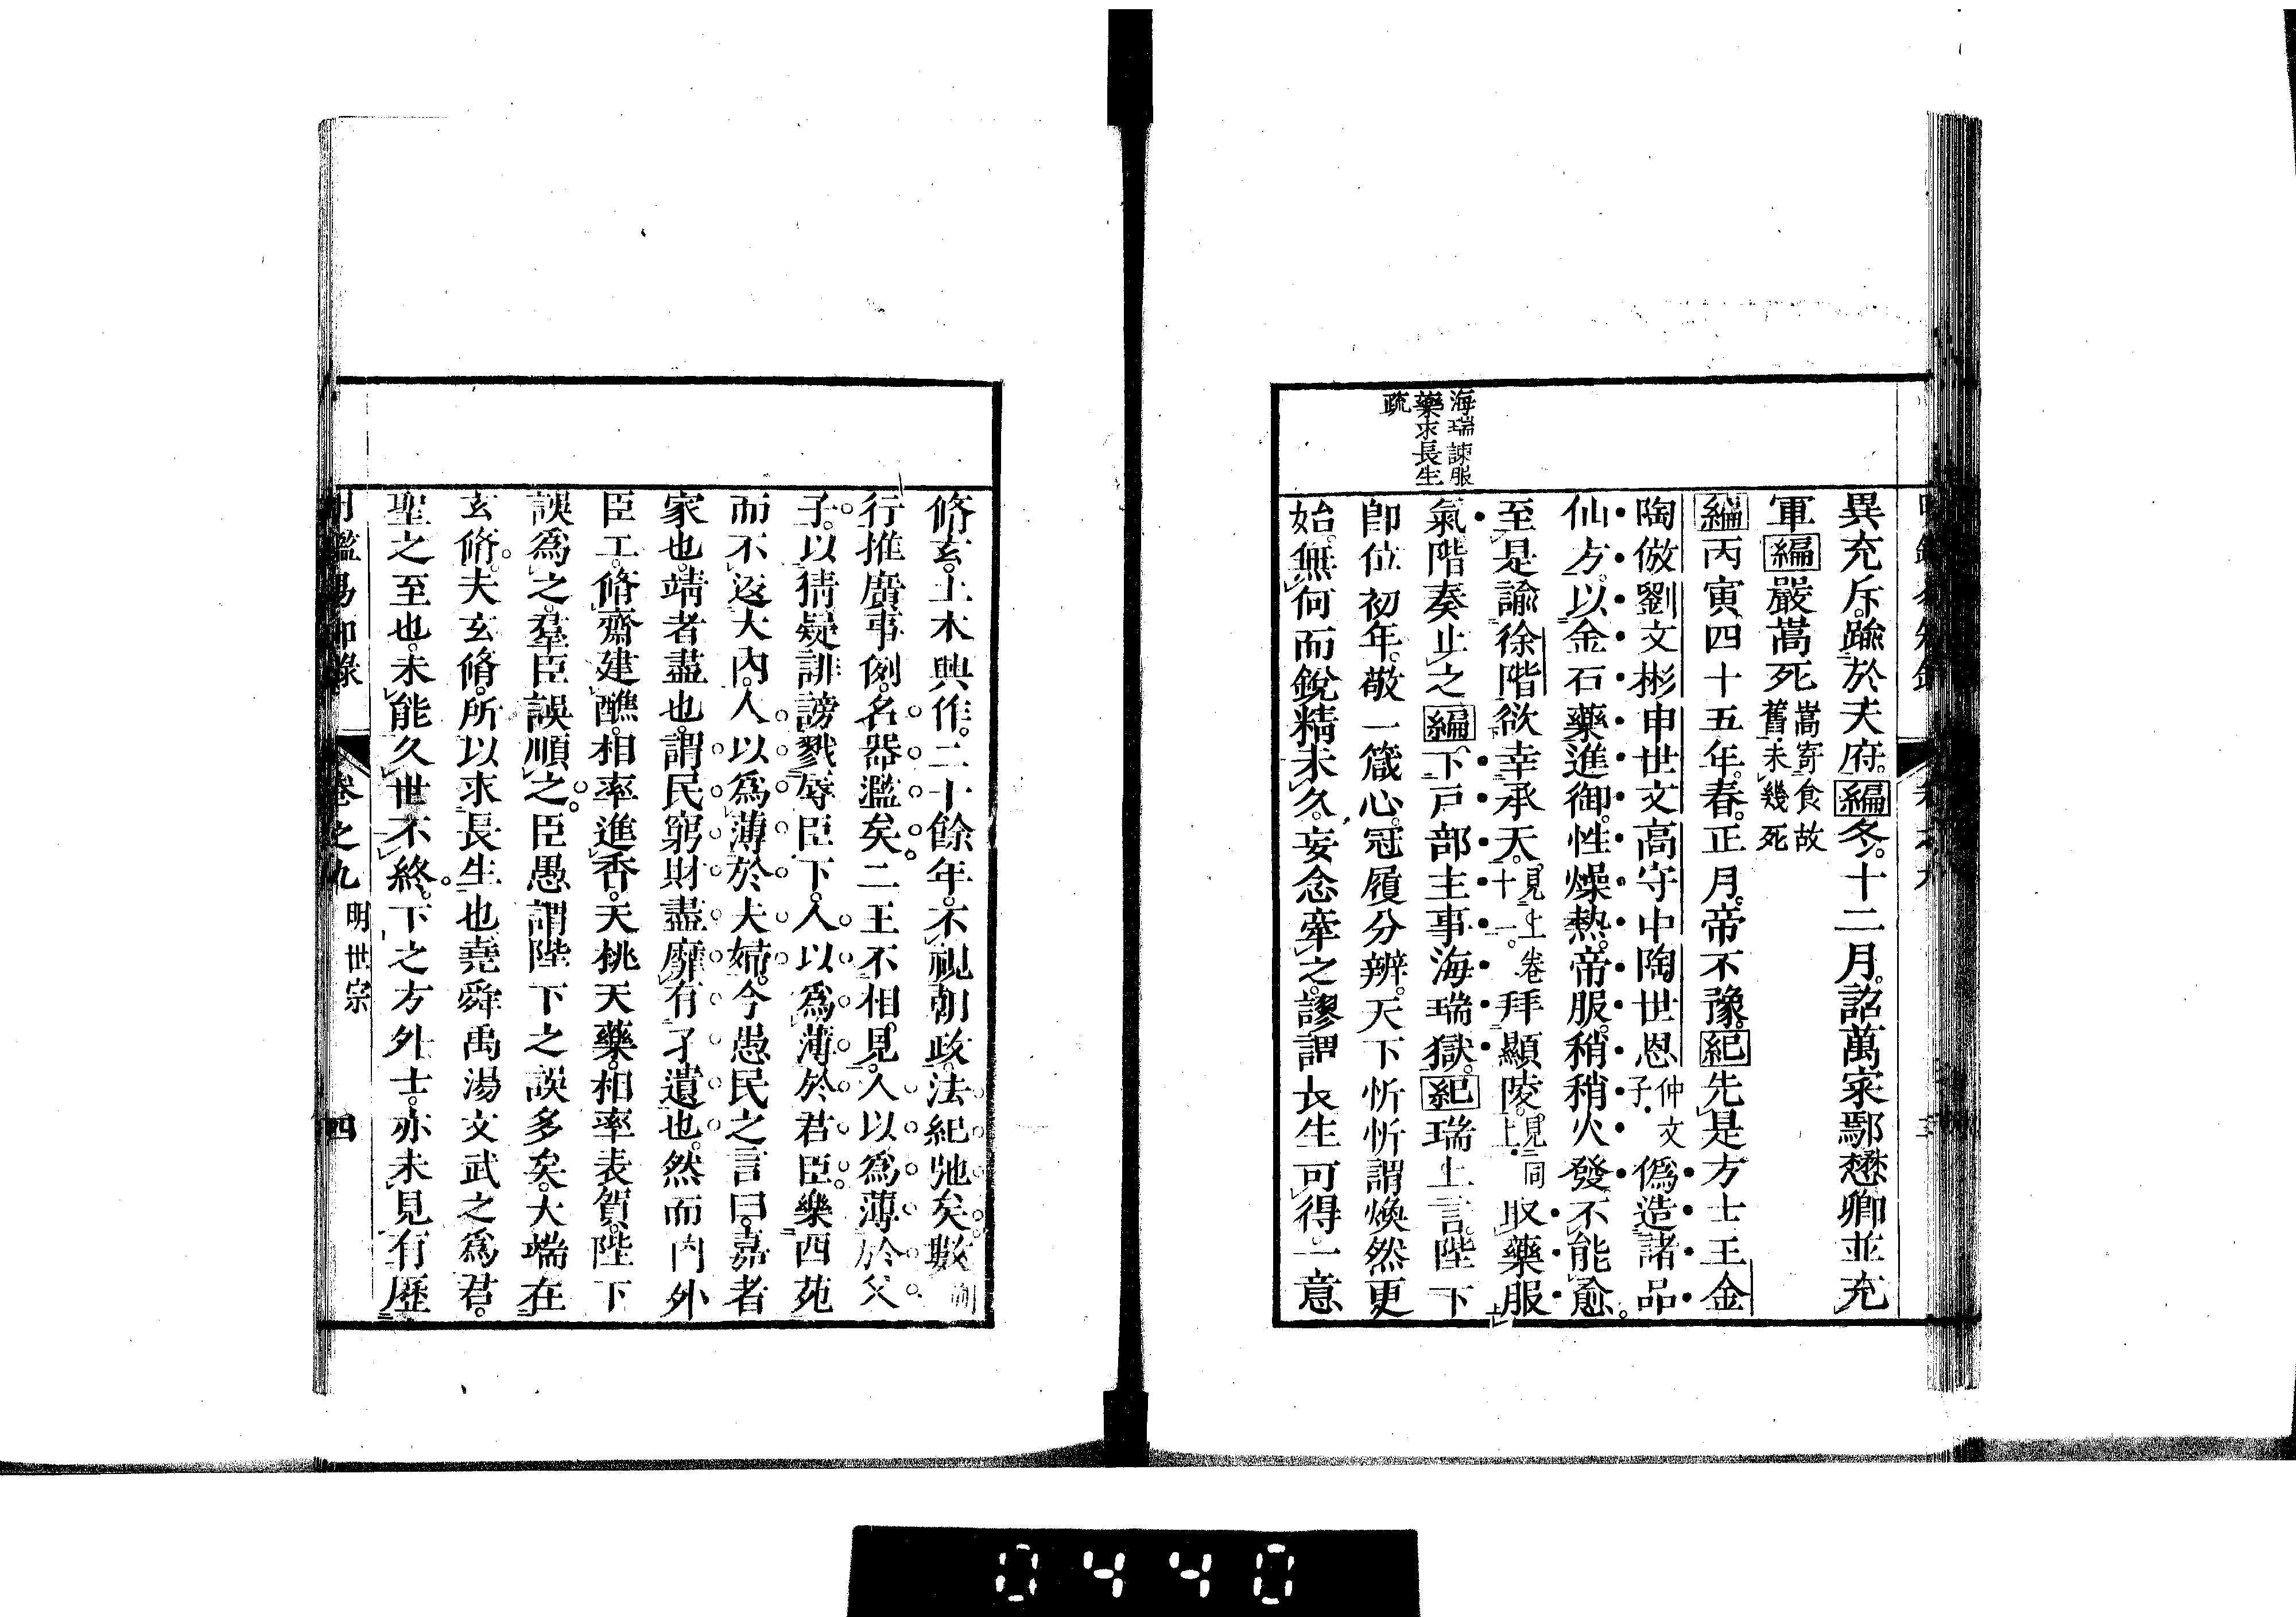 異充斥。踰於天府。編冬。十二月。詔萬寀鄢懋卿並充
軍編嚴蒿死蒿寄食故舊未幾死
編丙寅四十五年。春。正月。帝不豫。紀先是方士王金
陶倣劉文彬申世文高守中陶世恩仲文子偽造諸品
仙方。以金石藥進御。性燥熱。帝服。稍稍火發不能愈。
至是諭徐階欲幸承天。見上卷十一。拜顯陵。見上同取藥服
氣階奏止之編下戶部主事海瑞獄。紀瑞上言。陛下
卽位初年。敬一箴心。冠履分辨。天下忻忻謂煥然更
始。無何而銳精未久。妄念牽之。謬謂長生可得。一意
海瑞諫服
藥求長生
疏
脩玄。土木興作。二十餘年。不視朝政。法紀弛矣數
行推廣事例。名器濫矣。二王不相見。人以爲薄於父
子。以猜疑誹謗戮辱臣下。人以爲薄於君臣。樂西苑
而不返大內。人以爲薄於夫婦。今愚民之言曰。嘉者
家也。靖者盡也。謂民窮財盡。靡有孑遺也。然而內外
臣工。脩齋建醮。相率進香。天桃天藥。相率表賀。陛下
誤爲之。羣臣誤順之。臣愚謂陛下之誤多矣。大端在
玄脩。夫玄脩。所以求長生也。堯舜禹湯文武之爲君。
聖之至也。未能久世不終。下之方外士。亦未見有歷
卷之九 明世宗 四